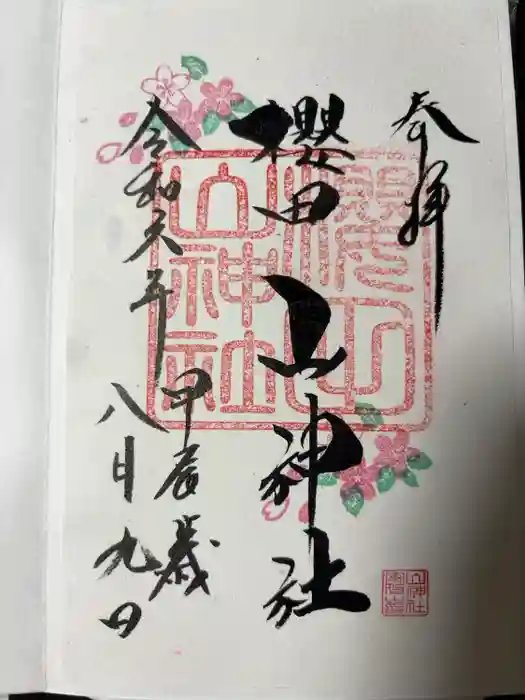 奉拝
櫻田山神社
令和六年
甲辰歳
八月九日
櫻田
山神社